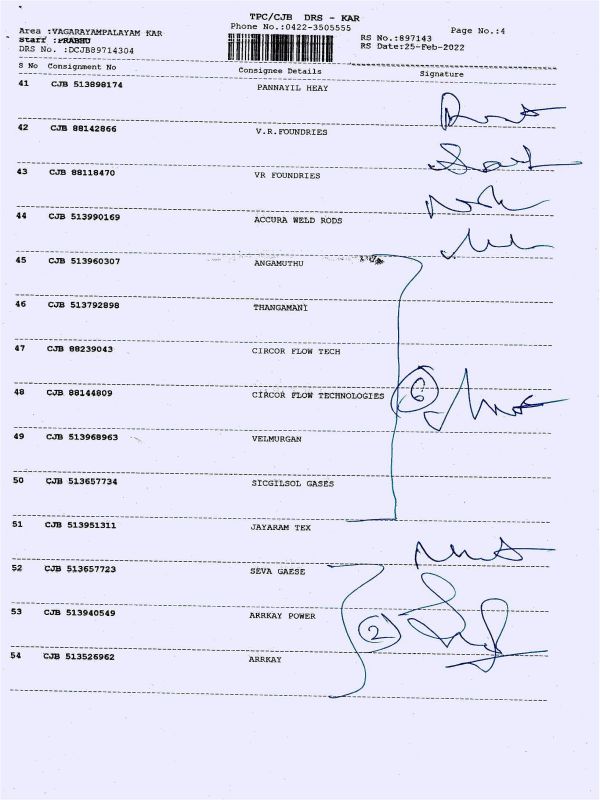 TPC/CJB DRS - KAR
Phone No.:0422-3505555
Page No.:4
Area :VAGARAYAMPALAYAM KAR
Staff :PRABHU
RS No.:897143
DRS No. :DCJB89714304
RS Date:25-Feb-2022
S No Consignment No Consignee Details Signature
41 CJB 513898174 PANNAYIL HEAY
42 CJB 88142866 V.R.FOUNDRIES
43 CJB 88118470 VR FOUNDRIES
44 CJB 513990169 ACCURA WELD RODS
45 CJB 513960307 ANGAMUTHU
46 CJB 513792898 THANGAMANI
47 CJB 88239043 CIRCOR FLOW TECH
48 CJB 88144809 CIRCOR FLOW TECHNOLOGIES 6
49 CJB 513968963 VELMURGAN
50 CJB 513657734 SICGILSOL GASES
51 CJB 513951311 JAYARAM TEX
52 CJB 513657723 SEVA GAESE
53 CJB 513940549 ARRKAY POWER 2
54 CJB 513526962 ARRKAY